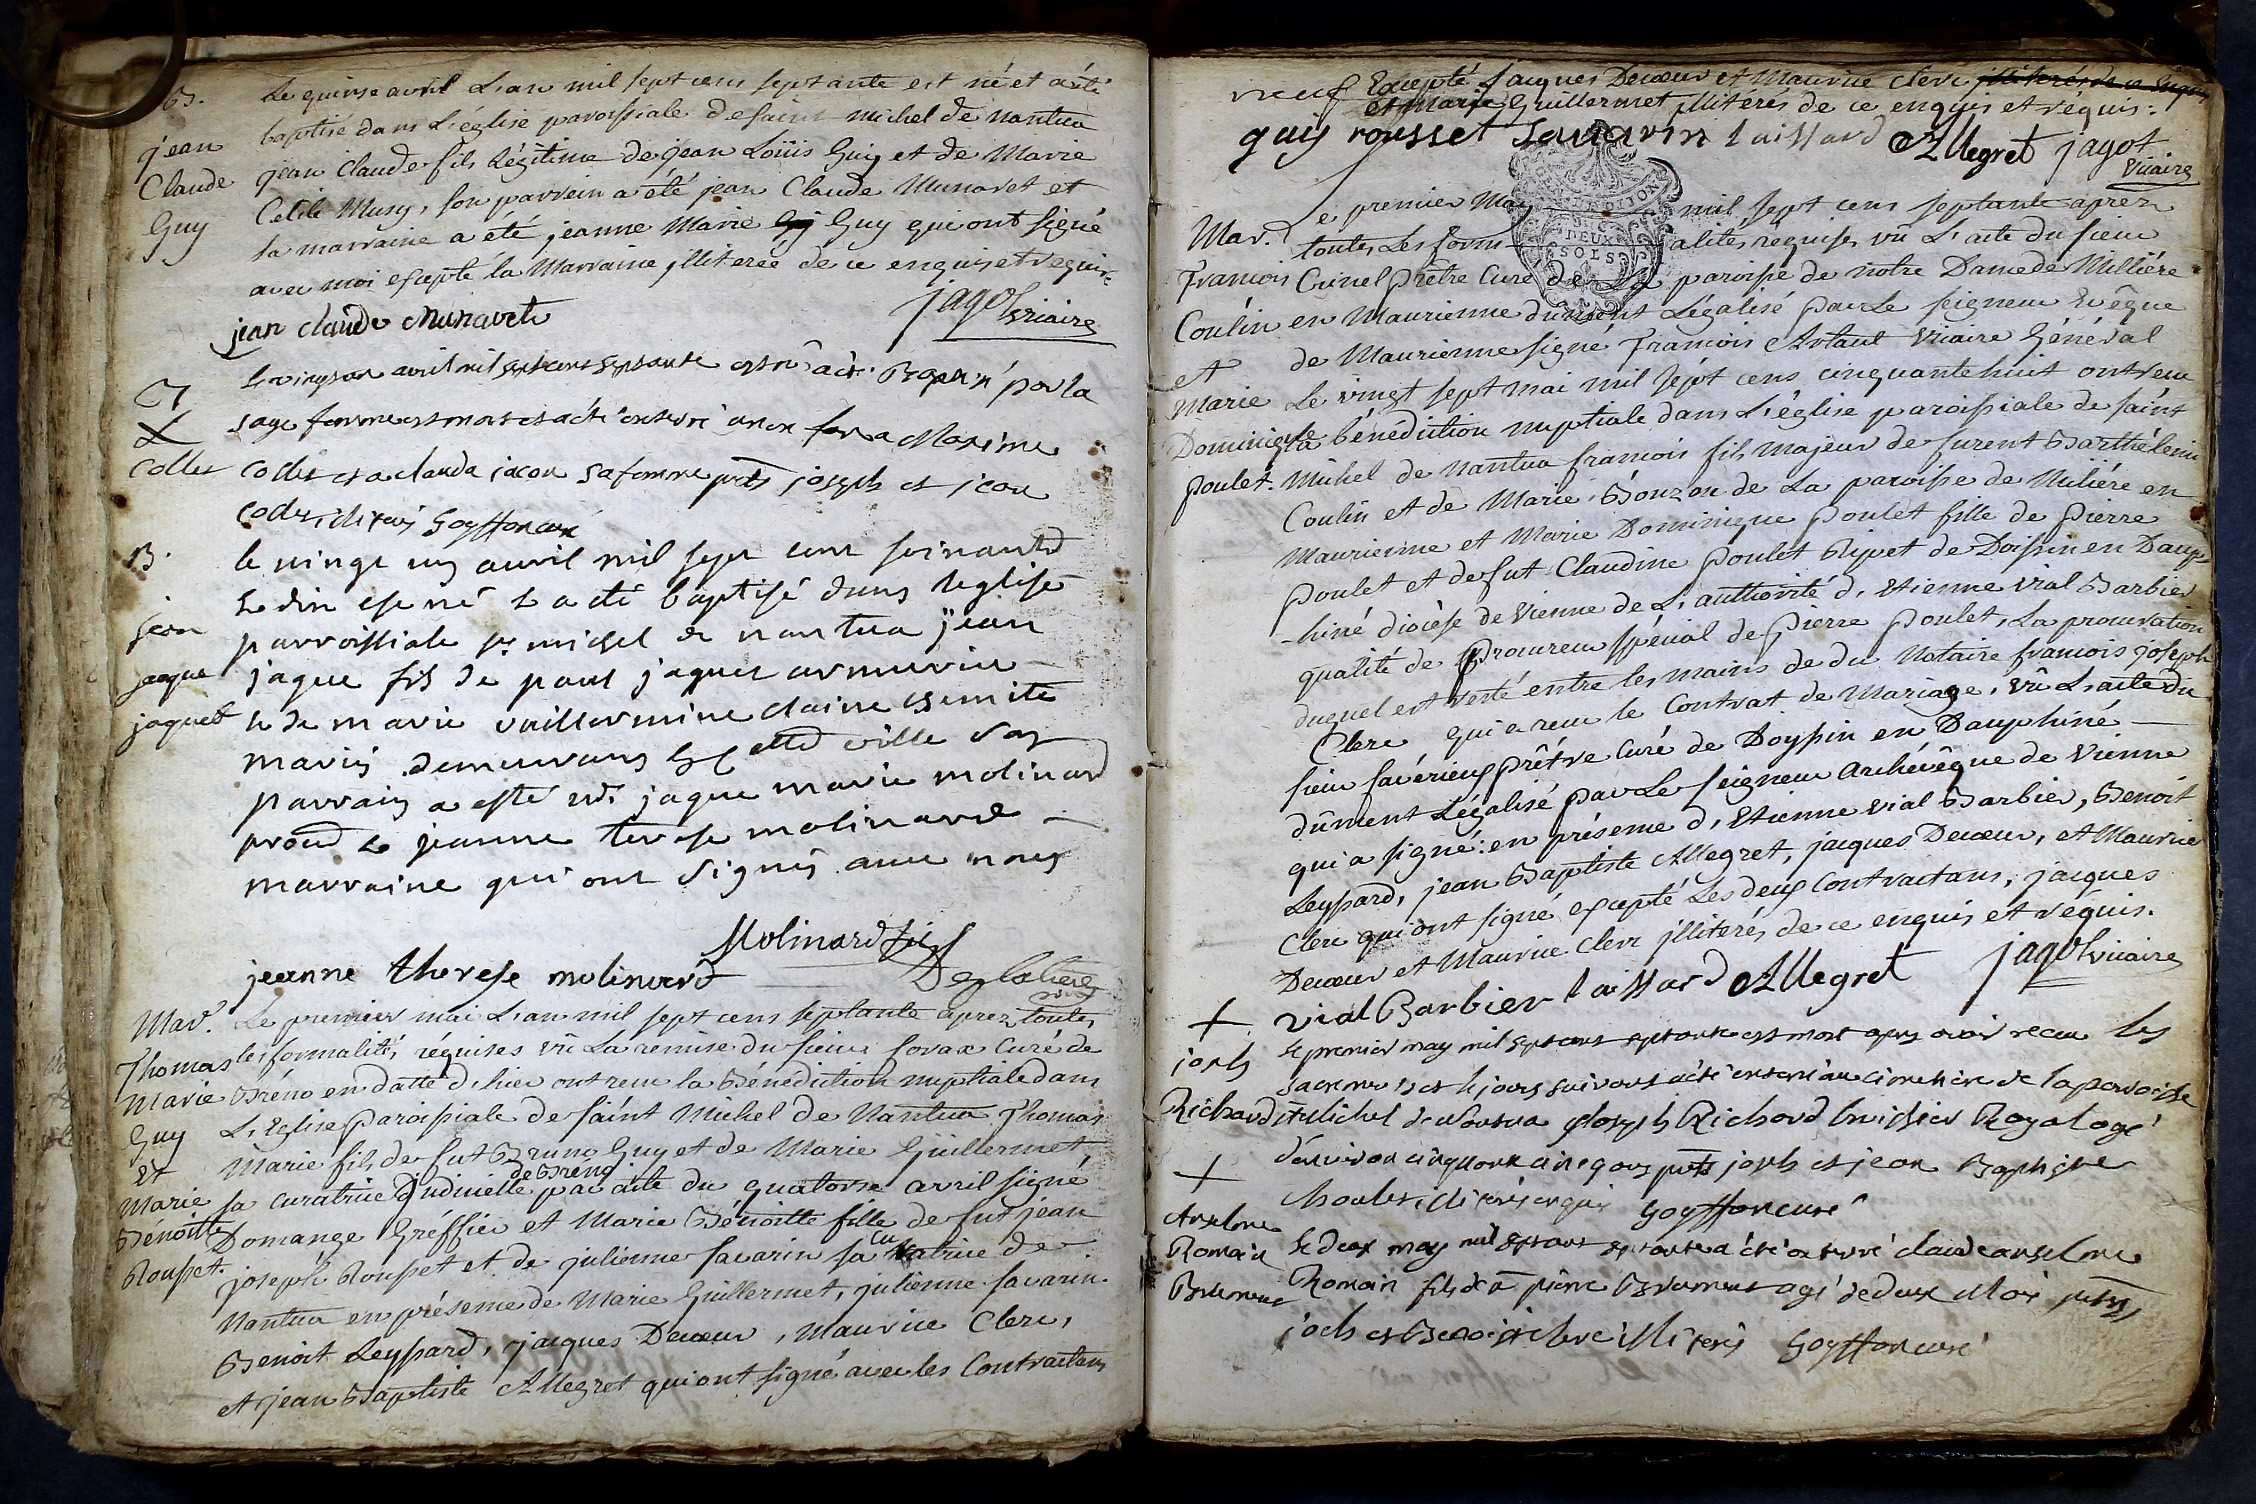 B.
Le quinse avril L'an mil sept cens septante est né et a été
baptisé dans L'église paroissiale de saint michel de nantua
jean Claude fils légitime de jean Loüis Guy et de Marie
Cécile Musy, son parrein a été jean Claude Munaret et
sa marraine a été jeanne Marie Guy qui ont signé
avec moi excepté la Marraine illiterée de ce enquise et requise
jean
Claude
Guy
jean claude Munaret
jagot vicaire
avril mil sept cens septante est né a été par la
sage femme est mort et a été enterré Maxime
Collet et a clauda jacon sa femme pnts joseph et jean
Collet, Goyffon curé
Collet
B.
jean
jaque
jaquet
le vingt un avril mil sept cent soixante
et dix est né et a été baptisé dans leglise
parroissiale st michel de nantua jean
jaque fils de paul jaquet armurier
et de marie vuillermine claire
mariés demeurans en cette ville son
parrain a esté jaque marie molinard
et jeanne terese molinard
marraine qui ont signés avec nous
Molinard fils
jeanne therese molinard
Deglatiere
Mar.
Thomas
Marie
Guy
et
Marie
Bénoitte
Rousset.
Le premier mai L'an mil sept cens septante aprez toutes
les formalités réquises vû La remise du sieur savax Curé de
Bréno en datte d'hier ont reçu la Bénédiction nuptiale dans
L'Eglise paroissiale de saint Michel de Nantua Thomas
Marie fils de fut Bruno Guy et de Marie Guillermet,
de Bréno
sa curatrice Judicielle par acte du quatorse avril signé
Domange Gréffier et Marie Bénoitte fille de fut jean
joseph Rousset et de julienne savarin sa Curatrice de
Nantua en présence de Marie Guillermet, julienne savarin
Benoit Leyssard, jacques Decœur, Maurice Clerc,
et jean Baptiste Allegret qui ont signé avec les Contractans
Excepté jacques Decœur et Maurice clerc illiterés de ce enquis
et marie Guillermet illitérés de ce enquis et réquis.
guy rousset Savarin Laissard Allegret jagot
vicaire
Mar.
François
Coulin
et
Marie
Dominique
poulet.
Le premier May mil sept cens septante aprez
toutes Les formalités requises vû L'acte du sieur
Crinel Prêtre Curé de La paroisse de notre Dame de Milliére
en Maurienne dûment Légalisé par Le seigneur Evêque
de Maurienne signé françois Artaut Vicaire Général
Le vingt sept mai mil sept cens cinquante huit ont reçu
la bénédiction nuptiale dans L'église paroissiale de saint
Michel de Nantua françois fils majeur de furent Barthélemi
Coulin et de Marie Bouzon de La paroisse de Miliére en
Maurienne et Marie Dominique Poulet fille de Pierre
Poulet et de fut Claudine Poulet Ripet de Doissin en Daup-
-hiné diocèse de Vienne de L'authorité d'Etienne Vial Barbier
qualité de Procureur spécial de Pierre Poulet, La procuration
duquel est resté entre les mains de du Notaire françois joseph
Clerc qui a reçu le Contrat de Mariage, vû L'acte du
sieur favérieux prêtre Curé de Doyssin en Dauphiné
dûment Légalisé par Le seigneur Archévêque de Vienne
qui a signé: en présence d'Etienne Vial Barbier, Benoit
Leyssard, jean Baptiste Allegret, jacques Decœur, et Maurice
Clerc qui ont signé excepté Les deux Contractans, jacques
Decœur et Maurice Clerc illiterés de ce enquis et réquis.
vial Barbier Laissard Allegret
jagot vicaire
joseph
Richard
le premier may mil sept cens septante est mort apres avoir receu les
sacremens et le jours suivant a été enterré au cimetiere de la parroisse
st Michel de Nantua joseph Richard huissier Royal agé
d'environ cinquante cinq ans pnts joseph et jean Baptiste
illiterés enquis Goyffon curé
Anselme
Romain
le deux may mil sept cens septante a été enterré claude anselme
Romain fils de pierre agé de deux Mois pnts
et Benoit clerc illiterés Goyffon curé